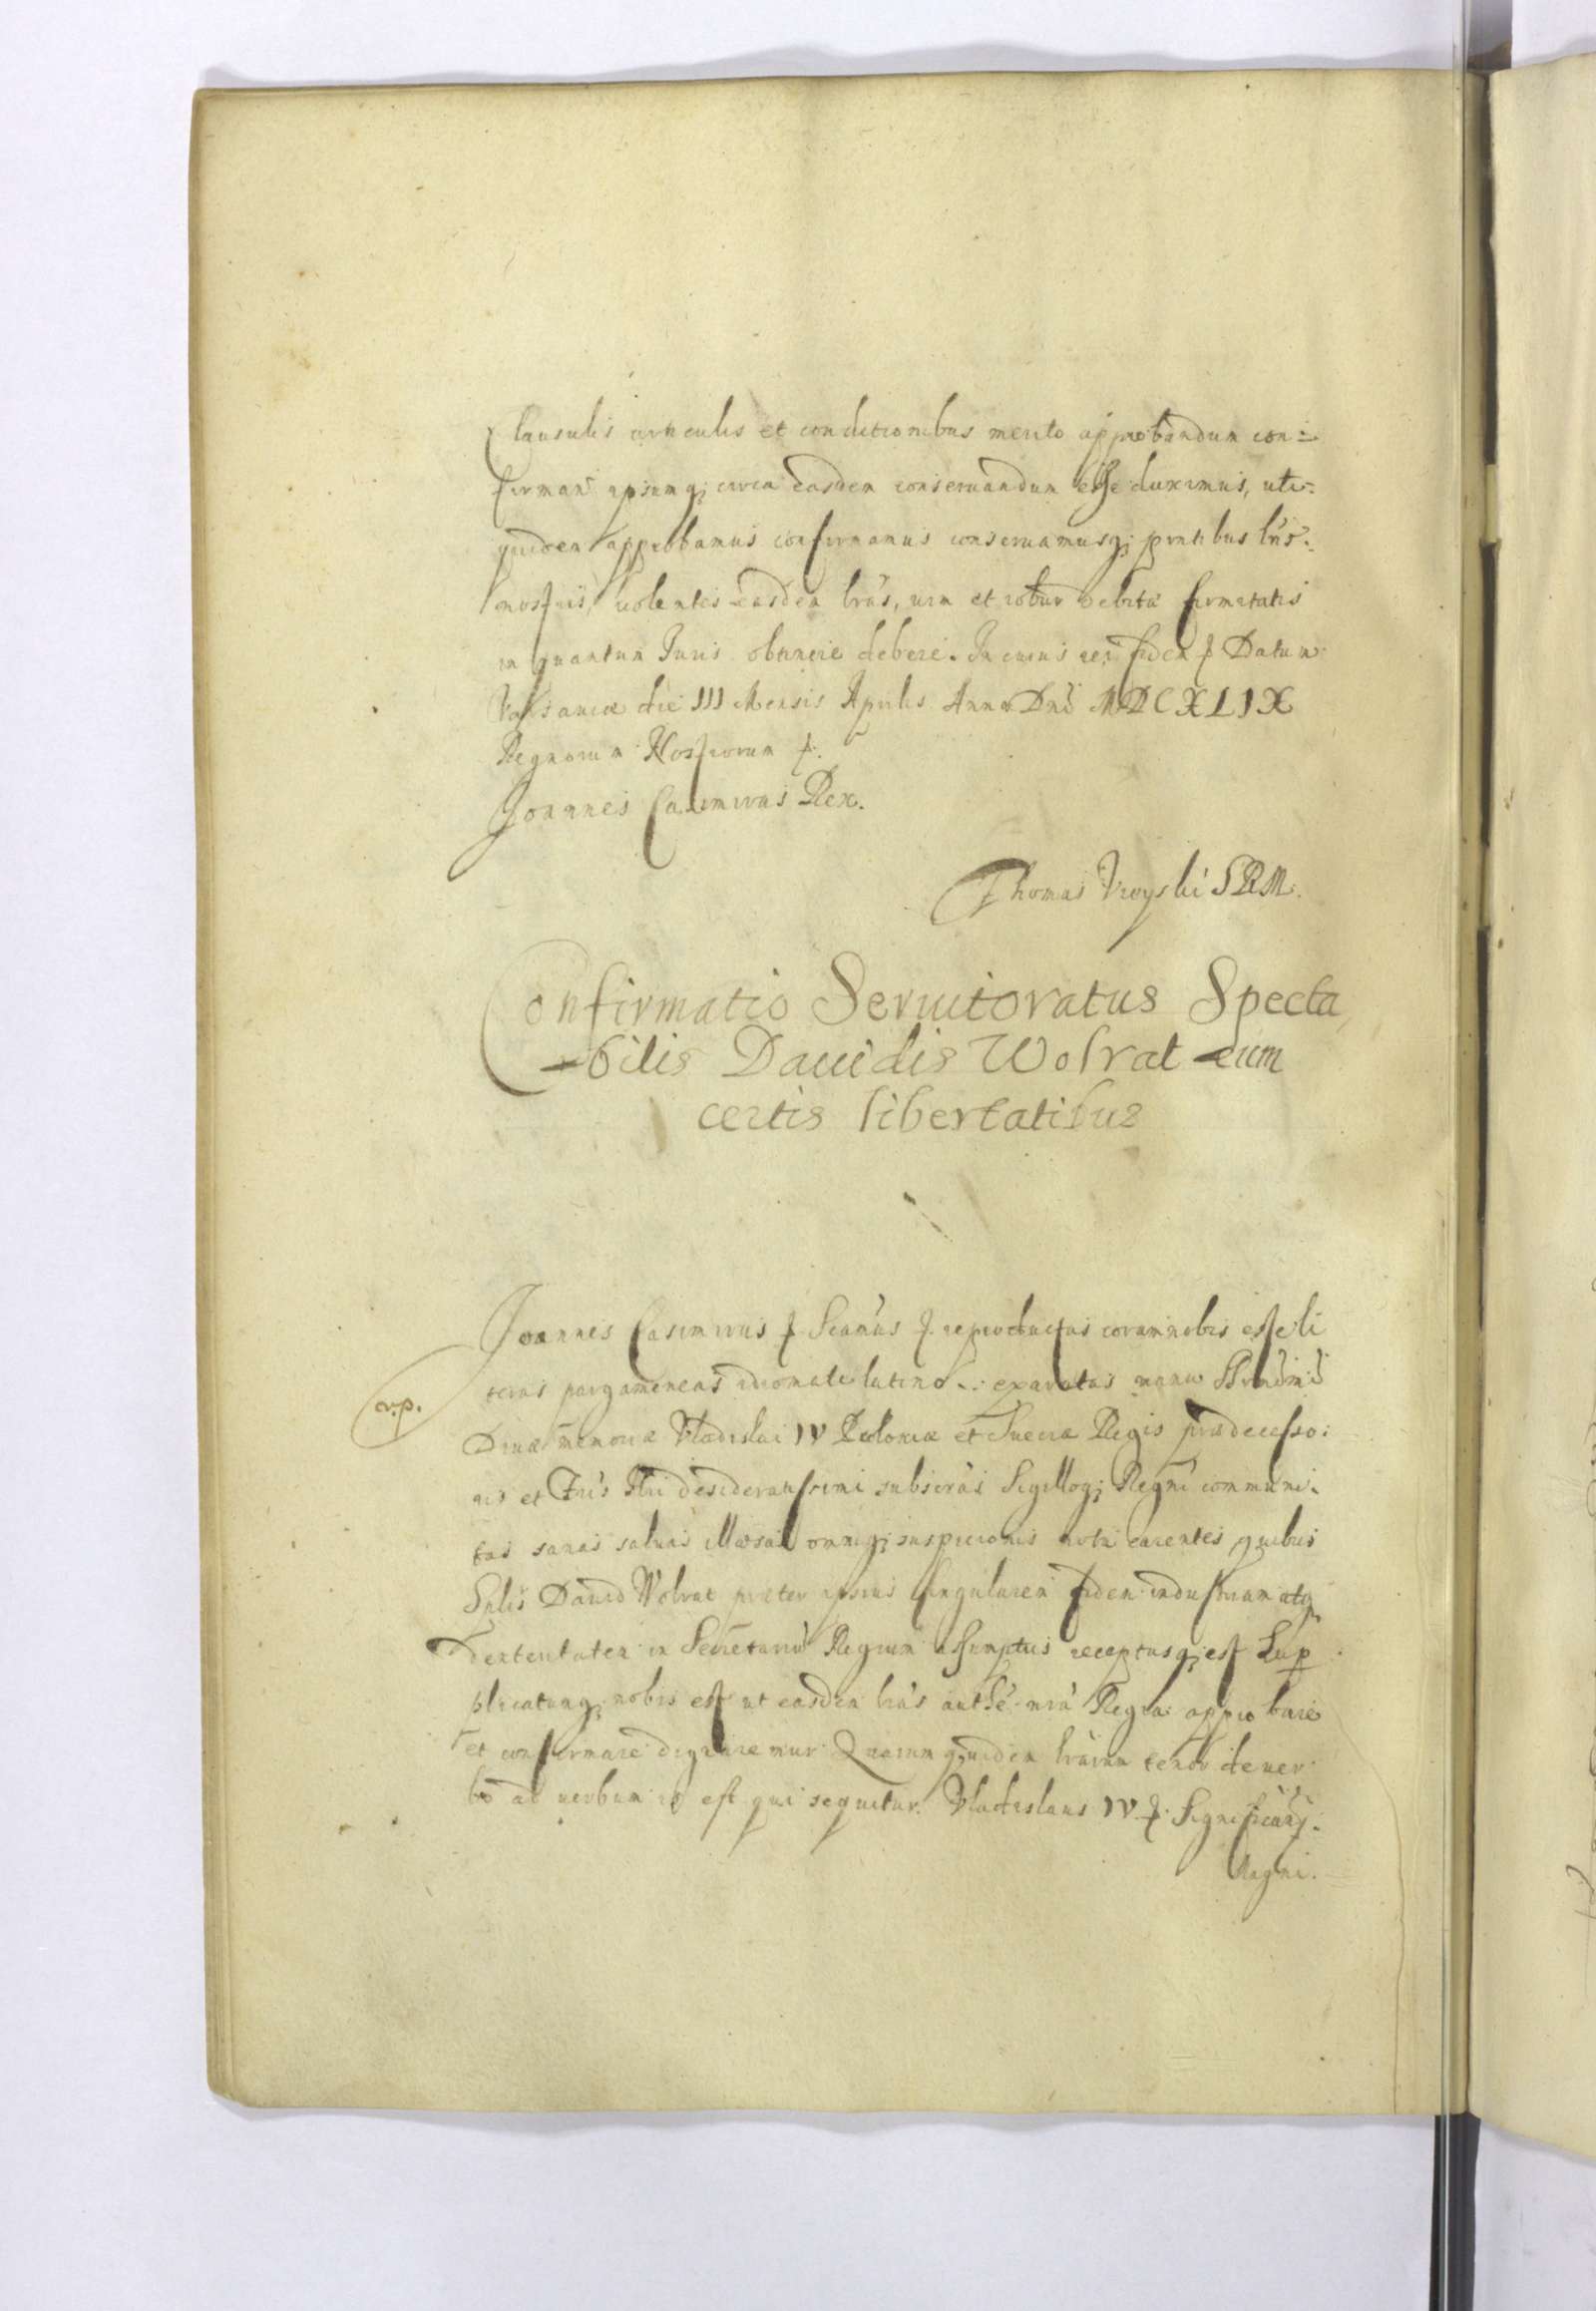 Clausulis articulis et conditionibus merito approbandum con=
firman ipsumq; circa easdem conseruandum esse duximus, uti=
quidem approbamus confirmamus conseruamusq; pntibus lris
nostris, uolentes easdem lras, uim et robur debitæ firmitatis
in quantum Juris obtinere debere. In cuius rei fidem Datum
Varsauiæ die III Mensis Aprilis Anno Dni MDCXLIX
Regnorum Nostrorum
Joannes Casimirus Rex.
Thomas Vieyski SRM.
Confirmatio Seruitoratus Specta
-bilis Dauidis Wolrat cum
certis libertatibus
Joannes Casimirus Scamus reproductas coram nobis esse li
teras pargameneas idiomate latino exaratas manu Srnimi
a.p.
Diuæ memoriæ Vladislai IV Poloniæ et Sueciæ Regis prædecesso:
ris et Fris Nri desideratissimi subscras Sigilloq; Regni communi-
tas sanas saluas illæsas omniq; suspicionis nota carentes quibus
Splis Dauid Wolrat præter ipsius singularem fidem industriam atq
dexteritatem in Secretariu Regium assumptus receptusq; est Sup
plicatumq; nobis est ut easdem lras auth-te nra Regia approbare
et confirmare dignaremur Quarum quidem lrarum tenor de uer
bo ad uerbum is est qui sequitur. Vladislaus IV Significam9.
Regni.